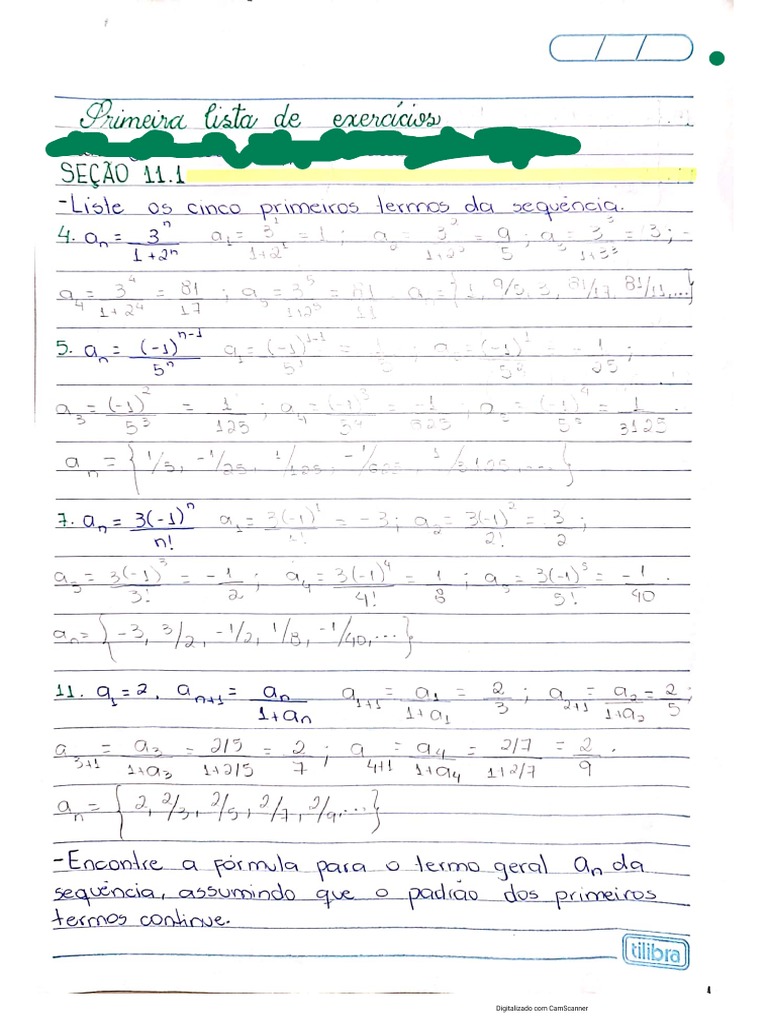 Primeira lista de exercícios
SEÇÃO 11.1
- Liste os cinco primeiros termos da sequência.
4. aₙ = 3ⁿ/(1+2ⁿ) a₁ = 3¹/(1+2¹) = 1; a₂ = 3²/(1+2²) = 9/5; a₃ = 3³/(1+3³) = 3;
a₄ = 3⁴/(1+2⁴) = 81/17; a₅ = 3⁵/(1+2⁵) = 81/11. aₙ = {1, 9/5, 3, 81/17, 81/11,...}
5. aₙ = (-1)ⁿ⁻¹/5ⁿ a₁ = (-1)¹⁻¹/5¹ = 1/5; a₂ = (-1)¹/5² = -1/25;
a₃ = (-1)²/5³ = 1/125; a₄ = (-1)³/5⁴ = -1/625; a₅ = (-1)⁴/5⁵ = 1/3125.
aₙ = {1/5, -1/25, 1/125, -1/625, 1/3125,...}
7. aₙ = 3(-1)ⁿ/n! a₁ = 3(-1)¹/1! = -3; a₂ = 3(-1)²/2! = 3/2;
a₃ = 3(-1)³/3! = -1/2; a₄ = 3(-1)⁴/4! = 1/8; a₅ = 3(-1)⁵/5! = -1/40.
aₙ = {-3, 3/2, -1/2, 1/8, -1/40,...}
11. a₁ = 2, aₙ₊₁ = aₙ/(1+aₙ) a₁₊₁ = a₁/(1+a₁) = 2/3; a₂₊₁ = a₂/(1+a₂) = 2/5;
a₃₊₁ = a₃/(1+a₃) = 2/5/(1+2/5) = 2/7; a₄₊₁ = a₄/(1+a₄) = 2/7/(1+2/7) = 2/9.
aₙ = {2, 2/3, 2/5, 2/7, 2/9,...}
- Encontre a fórmula para o termo geral aₙ da
sequência, assumindo que o padrão dos primeiros
termos continue.
tilibra
Digitalizado com CamScanner